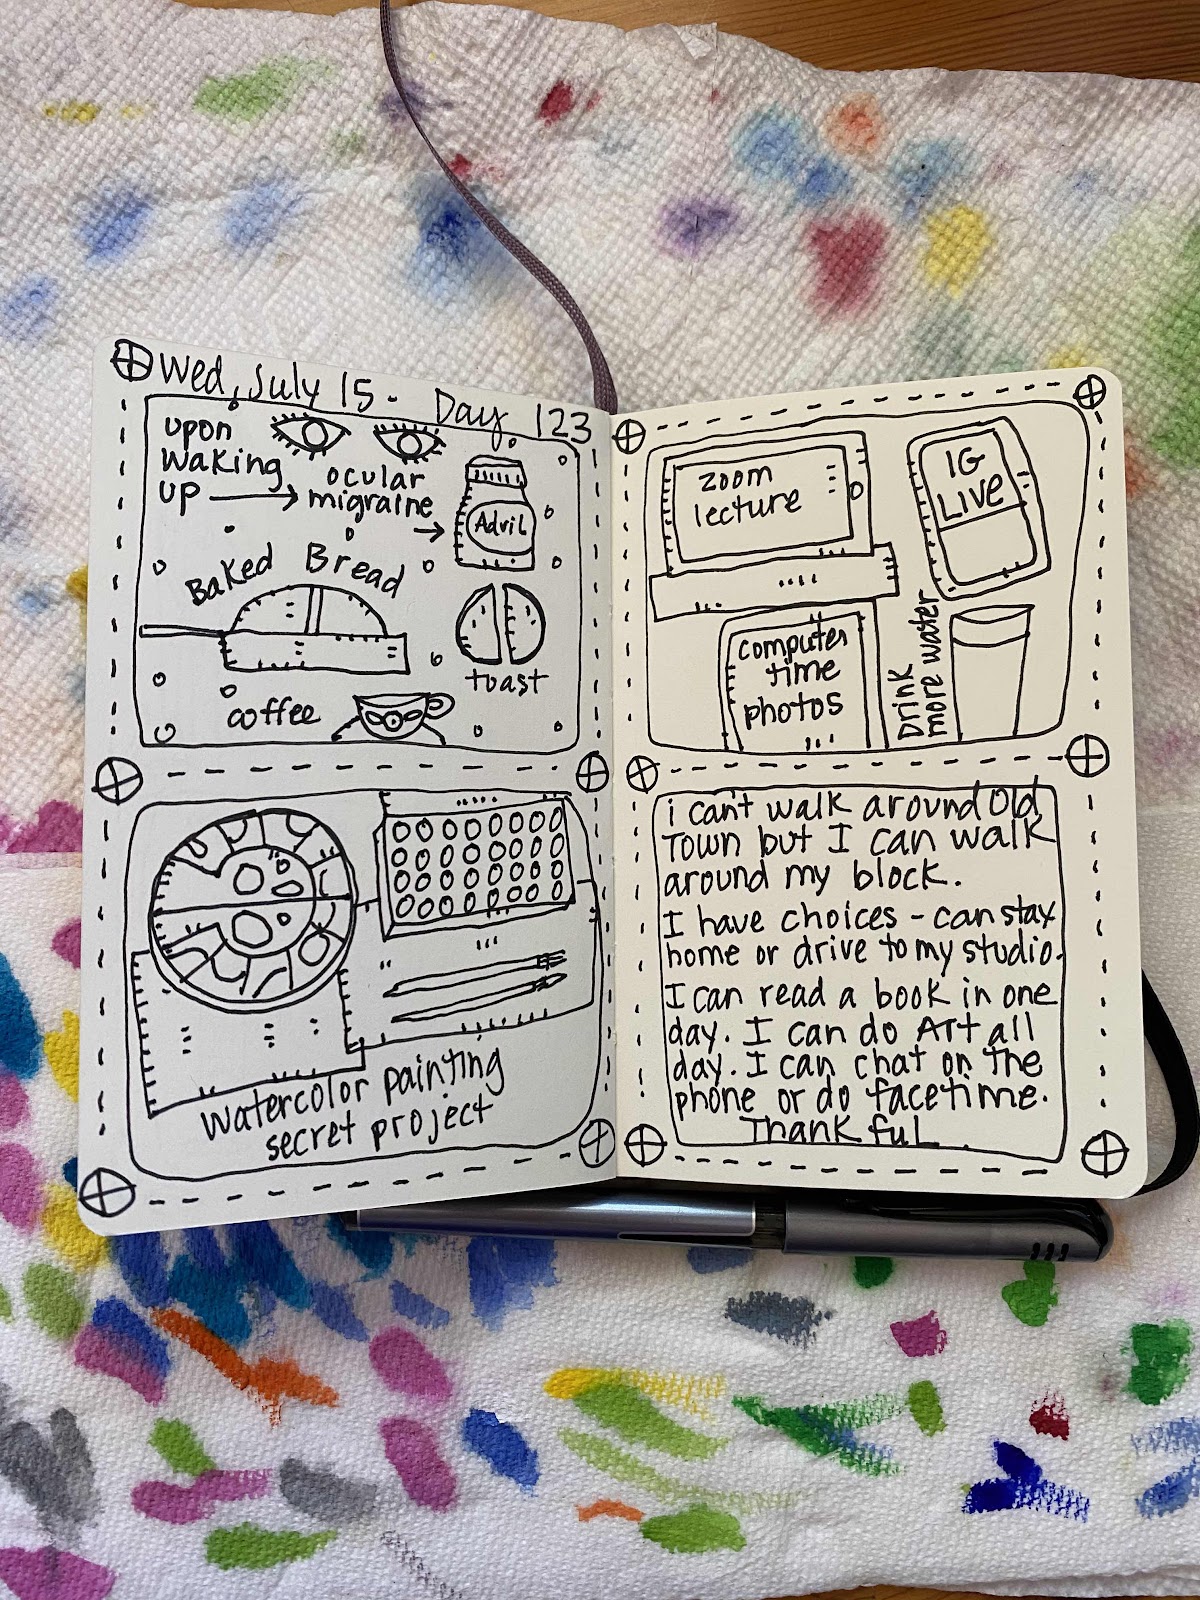 Wed, July 15 - Day. 123
upon
waking
up
ocular
migraine
Advil
Baked Bread
toast
coffee
watercolor painting
secret project
zoom
lecture
IG
LIVE
computer
time
photos
Drink
more water
i can't walk around Old
Town but I can walk
around my block.
I have choices - can stay
home or drive to my studio.
I can read a book in one
day. I can do Art all
day. I can chat on the
phone or do facetime.
Thankful